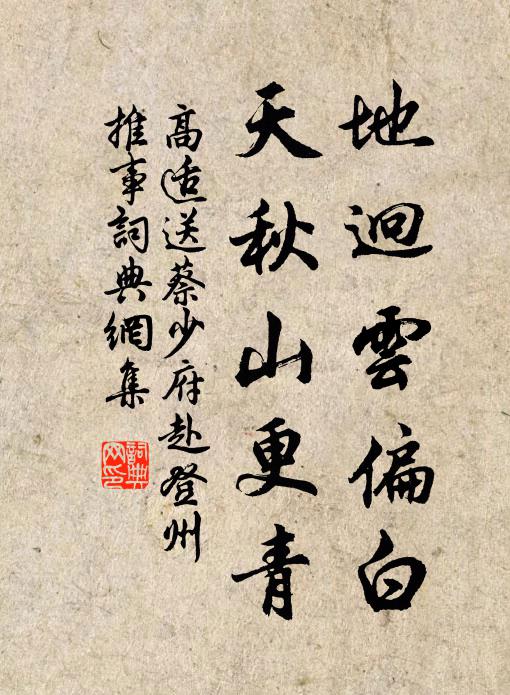 地迥雲偏白
天秋山更青
高适送蔡少府赴登州
推事詞典網集
詞典
网印